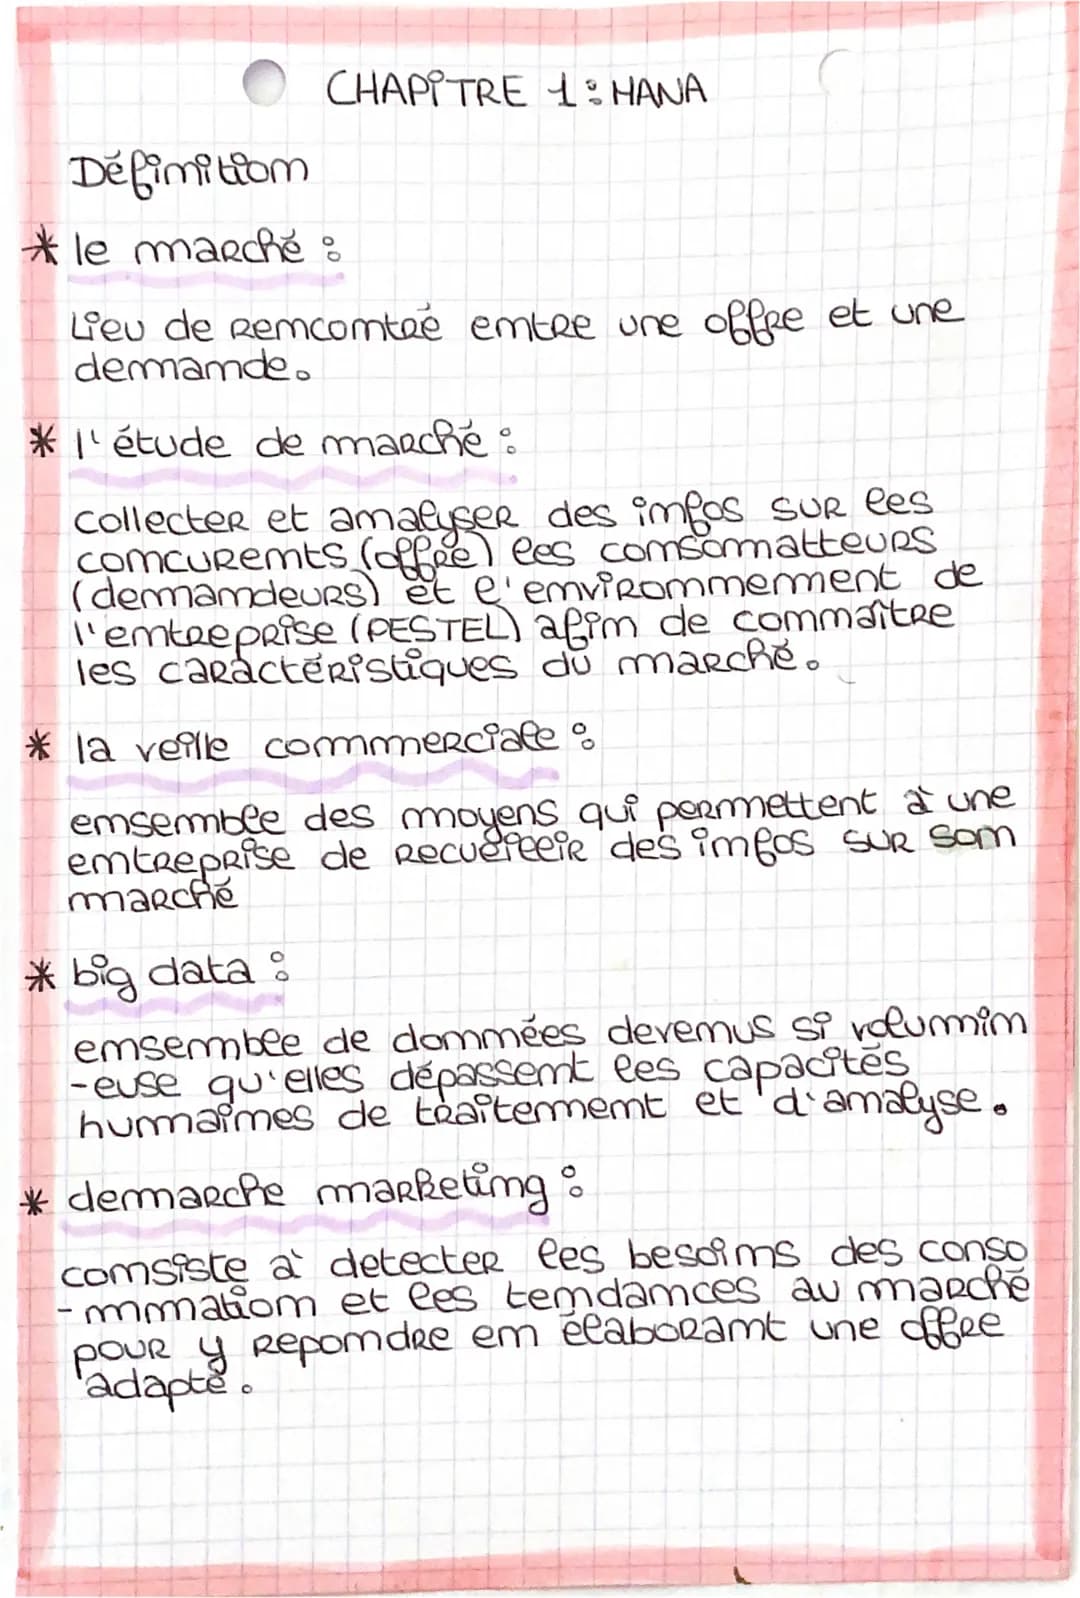 CHAPITRE 1: MANA
Définition
* le marché :
Lieu de rencontre entre une offre et une
demande.
* l'étude de marché :
collecter et analyser des infos sur les
concurents (offre) les consommatteurs
(demandeurs) et l'environnement de
l'entreprise (PESTEL) afin de connaître
les caractéristiques du marché.
* la veille commerciale :
ensemble des moyens qui permettent à une
entreprise de recueillir des infos sur son
marché
* big data :
ensemble de données devenus si volumin
-euse qu'elles dépassent les capacités
humaines de traitement et d'analyse.
* demarche marketing :
consiste à detecter les besoins des conso
-mmation et les tendances au marché
pour y repondre en élaborant une offre
adapté.